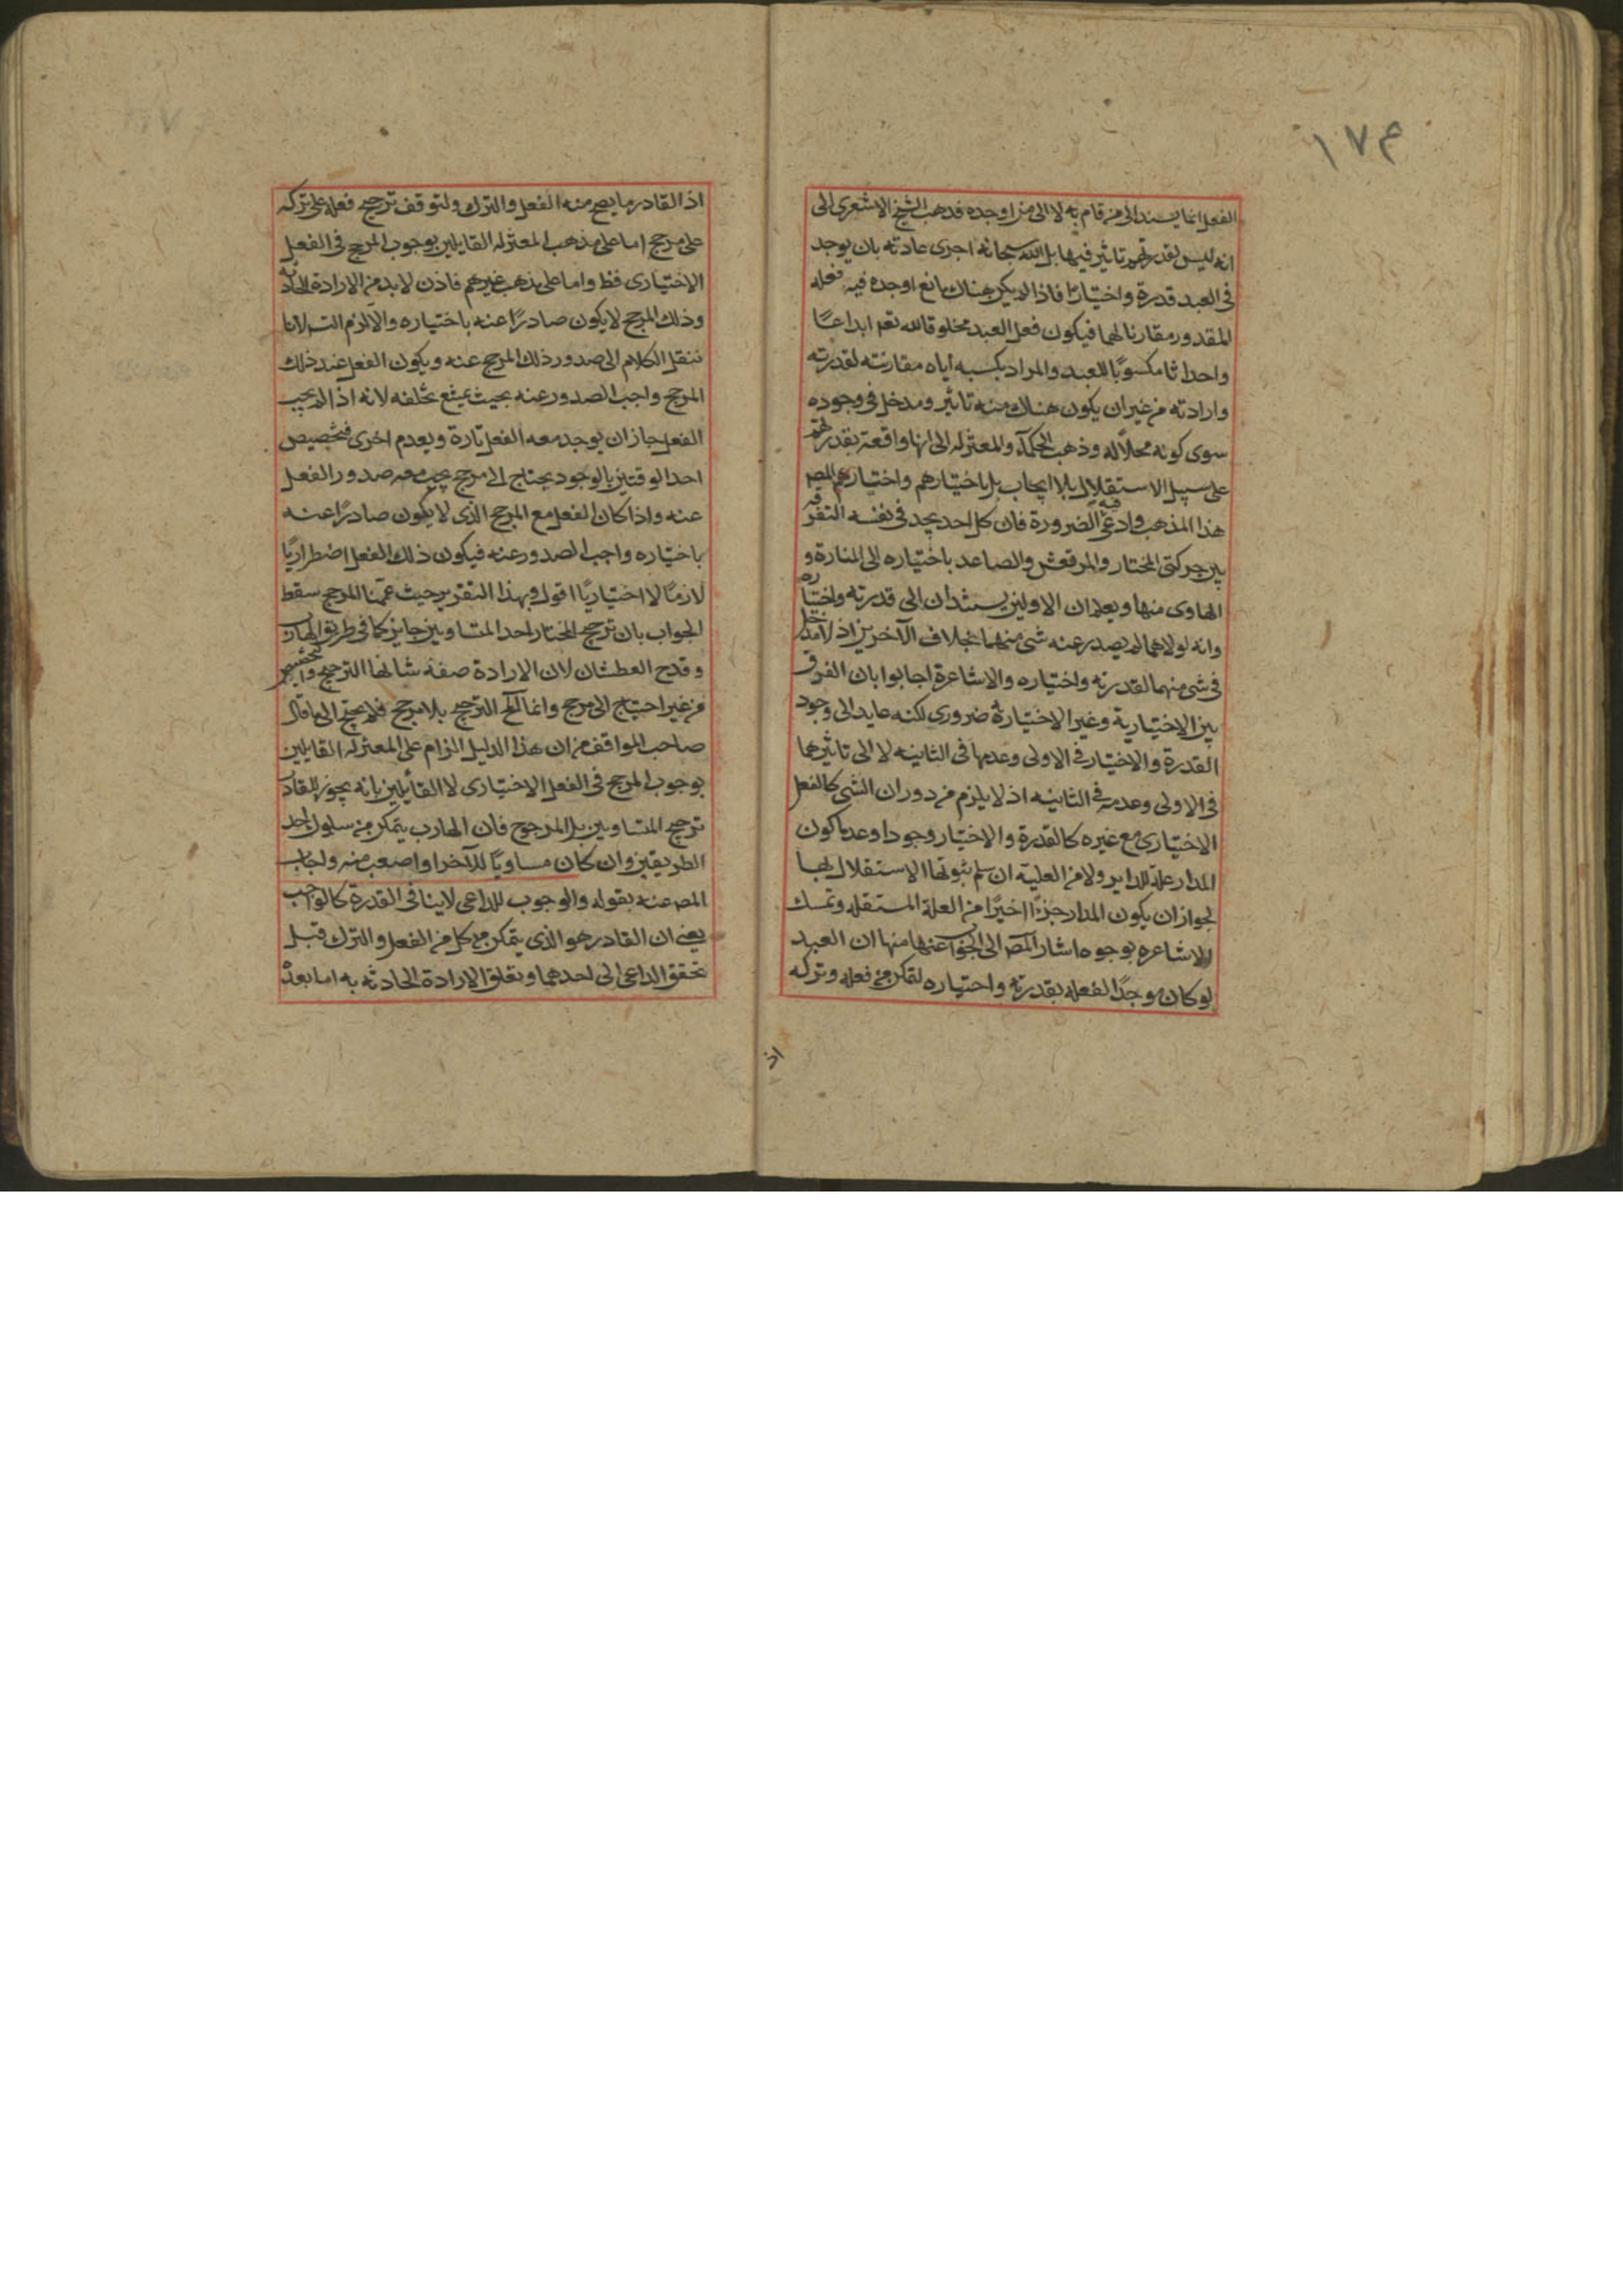 ١٧٣
الفعل انما يسند الى من قام به لا الى من اوجده فذهب الشيخ الاشعرى الى
انه ليس لقدرتهم تاثير فيها بل الله سبحانه اجرى عادته بان يوجد
فى العبد قدرة واختيارًا فاذا لم يكن هناك مانع اوجده فيه فعله
المقدور مقارنا لهما فيكون فعل العبد مخلوقا لله تعم ابداعًا
واحداثا مكسوبًا للعبد والمراد بكسبه اياه مقارنته لقدرته
وارادته من غير ان يكون هناك منه تاثير ومدخل فى وجوده
سوى كونه محلاً له وذهب الحكمآء والمعتزله الى انها واقعة بقدرتهم
على سبيل الاستقلال بلا ايجاب بل باختيارهم واختيار المص
هذا المذهب وادعى فيه الضرورة فان كل احد يجد فى نفسه التفرقه
بين حركتى المختار والمرتعش والصاعد باختياره الى المنارة و
الهاوى منها ويعلم ان الاولين يستندان الى قدرته واختياره
وانه لولاهما لم يصدر عنه شى منهما بخلاف الآخرين اذ لا مدخل
فى شى منهما لقدرته واختياره والاشاعرة اجابوا بان الفرق
بين الاختيارية وغير الاختيارية ضرورى لكنه عايد الى وجود
القدرة والاختيار فى الاولى وعدمها فى الثانيه لا الى تاثيرهما
فى الاولى وعدمه فى الثانيه اذ لا يلزم من دوران الشى كالفعل
الاختيارى مع غيره كالقدرة والاختيار وجودا وعدما كون
المدار علة للداير ولا من العلية ان سلم ثبوتها الاستقلال بها
لجواز ان يكون المدار جزءًا اخيرًا من العلة المستقله وتمسك
الاشاعره بوجوه اشار المص الى الجواب عنها منها ان العبد
لو كان موجدًا لفعله بقدرته واختياره لتمكن من فعله وتركه
اذ
اذ القادر ما يصح منه الفعل والترك ولتوقف ترجيح فعله على تركه
على مرجح اما على مذهب المعتزله القايلين بوجوب المرجح فى الفعل
الاختيارى فظ واما على مذهب غيرهم فاذن لابد من الارادة الحادثه
وذلك المرجح لا يكون صادرًا عنه باختياره والا لزم التسلانا
ننقل الكلام الى صدور ذلك المرجح عنه ويكون الفعل عند ذلك
المرجح واجب الصدور عنه بحيث يمتنع تخلفه لانه اذا لم يجب
الفعل جاز ان يوجد معه الفعل تارة ويعدم اخرى فتخصيص
احد الوقتين بالوجود يحتاج الى مرجح يجب معه صدور الفعل
عنه واذا كان الفعل مع المرجح الذى لا يكون صادرًا عنه
باختياره واجب الصدور عنه فيكون ذلك الفعل اضطراريًا
لازمًا لا اختياريًا اقول وبهذا التقرير حيث عممنا المرجح سقط
الجواب بان ترجيح المختار احد المتساويين جايز كما فى طريق الهارب
وقدح العطشان لان الارادة صفة شانها الترجيح والتخصيص
من غير احتياج الى مرجح وانما المح الترجيح بلا مرجح فلم يحتج الى ما قال
صاحب المواقف من ان هذا الدليل الزام على المعتزله القايلين
بوجوب المرجح فى الفعل الاختيارى لا القائلين بانه يجوز للقادر
ترجيح المتساويين بل المرجوح فان الهارب يتمكن من سلوك احد
الطريقين وان كان مساويًا للآخر او اصعب منه واجاب
المص عنه بقوله والوجوب للداعى لا ينافى القدرة كالواجب
يعنى ان القادر هو الذى يتمكن من كل من الفعل والترك قبل
تحقق الداعى الى احدهما وتعلق الارادة الحادثه به اما بعد